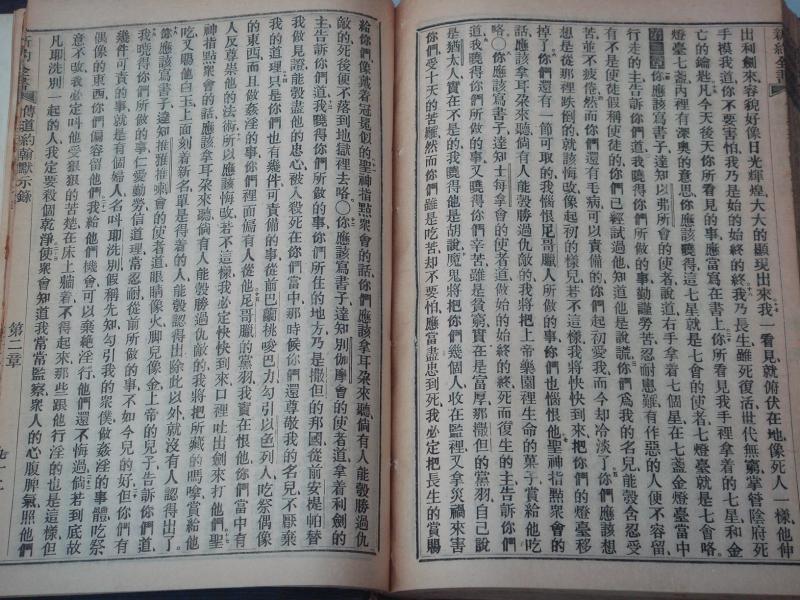 新約全書
出利劍來容貌好像日光輝煌大大的顯現出來我一看見就俯伏在地像死人一樣他伸
手模我道你不要害怕我乃是始的始終的終我乃長生雖死復活世代無窮掌管陰府死
亡的鑰匙凡今天後天你所看見的事應當寫在書上你所看見我手裡拿着的七星和金
燈臺七盞內裡有深奧的意思你應該曉得這七星就是七會的使者七燈臺就是七會咯
第二章你應該寫書子達知以弗所會的使者說道右手拿着七個星在七盞金燈臺當中
行走的主告訴你們道我曉得你們所做的事勤謹勞苦忍耐患難有作惡的人便不容留
有不是使徒假稱使徒的你們已經試過他知道他是說謊你們為我的名兒能彀含忍受
苦並不疲倦然而你們還有毛病可以責備的你們起初愛我而今却冷淡了你們應該想
想是從那裡跌倒的就該悔改像起初的樣兒若不這樣我將快快到來把你們的燈臺移
掉了你們還有一節可取的我惱恨尼哥臘人所做的事你們也惱恨他聖神指點衆會的
話應該拿耳朶來聽倘有人能彀勝過仇敵的我將把上帝樂園裡生命的菓子賞給他吃
咯○你應該寫書子達知士每拿會的使者道做始的始終的終死而復生的主告訴你們
道我曉得你們所做的事又曉得你們辛苦雖是貧窮實在是富厚那撒但的黨羽自己說
是猶太人實在不是的我曉得他是胡說魔鬼將把你們幾個人收在監裡又拿災禍來害
你們受十天的苦難然而你們雖是吃苦却不要怕應當盡忠到死我必定把長生的賞賜
給你們像戴着冠冕似的聖神指點衆會的話你們應該拿耳朶來聽倘有人能彀勝過仇
敵的死後便不落到地獄裡去咯○你應該寫書子達知別伽摩會的使者道拿着利劍的
主告訴你們道我曉得你們所做的事你們所住的地方乃是撒但的邦國從前安提帕替
我做見證能彀盡他的忠心被人殺死在你們當中那時候你們還尊敬我的名兒不厭棄
我的道理只是你們也有幾件可責備的事從前巴蘭挑唆巴力勾引以色列人吃祭偶像
的東西而且做姦淫的事你們裡面偏有人從他尼哥臘的黨羽我實在恨他你們當中有
人反尊崇他的法術所以應該悔改若不這樣我必定快快到來口裡吐出劍來打他們聖
神指點衆會的話應該拿耳朶來聽倘有人能彀勝過仇敵的我將把所藏的嗎嗱賞給他
吃又賜他白玉上面刻着新名單是得着的人能彀認得出除此以外就沒有人認得出了
你應該寫書子達知推雅推喇會的使者道眼睛像火脚兒像金上帝的兒子告訴你們道
我曉得你們所做的事仁愛勤勞信道理常忍耐從前所做的事不如今兒的好但你們有
幾件可責的事就是有個婦人名叫耶洗別假稱先知勾引我的衆僕做姦淫的事體吃祭
偶像的東西你們偏容留他我給他們機會可以棄絶淫行他們還不悔過倘若到底故
意不改我必定叫他受狠狠的苦楚在床上躺着不得起來那些跟他行淫的也是這樣但
凡耶洗別一起的人我定要殺個乾淨使衆會知道我常常監察衆人的心腹脾氣照他們
新約全書 傳道約翰默示錄 第二章